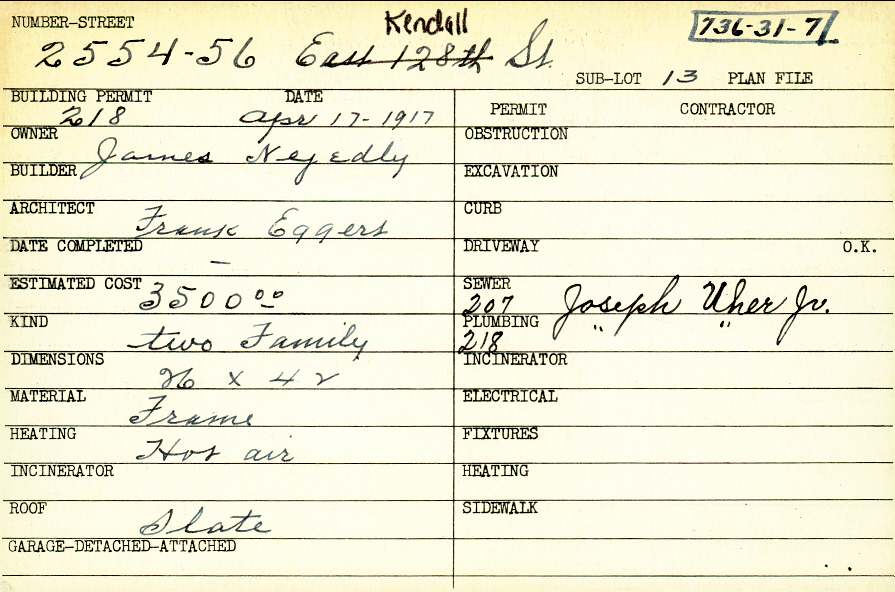 NUMBER-STREET Kendall 736-31-71
2554-56 East 128th St.
SUB-LOT 13 PLAN FILE
BUILDING PERMIT DATE
218 Apr 17-1917
PERMIT CONTRACTOR
OWNER James Nejedly
OBSTRUCTION
BUILDER
EXCAVATION
ARCHITECT Frank Eggers
CURB
DATE COMPLETED –
DRIVEWAY O.K.
ESTIMATED COST 3500 00
SEWER
207 Joseph Uher Jr.
KIND two Family
PLUMBING " "
218
DIMENSIONS 26 x 42
INCINERATOR
MATERIAL Frame
ELECTRICAL
HEATING Hot air
FIXTURES
INCINERATOR
HEATING
ROOF Slate
SIDEWALK
GARAGE-DETACHED-ATTACHED